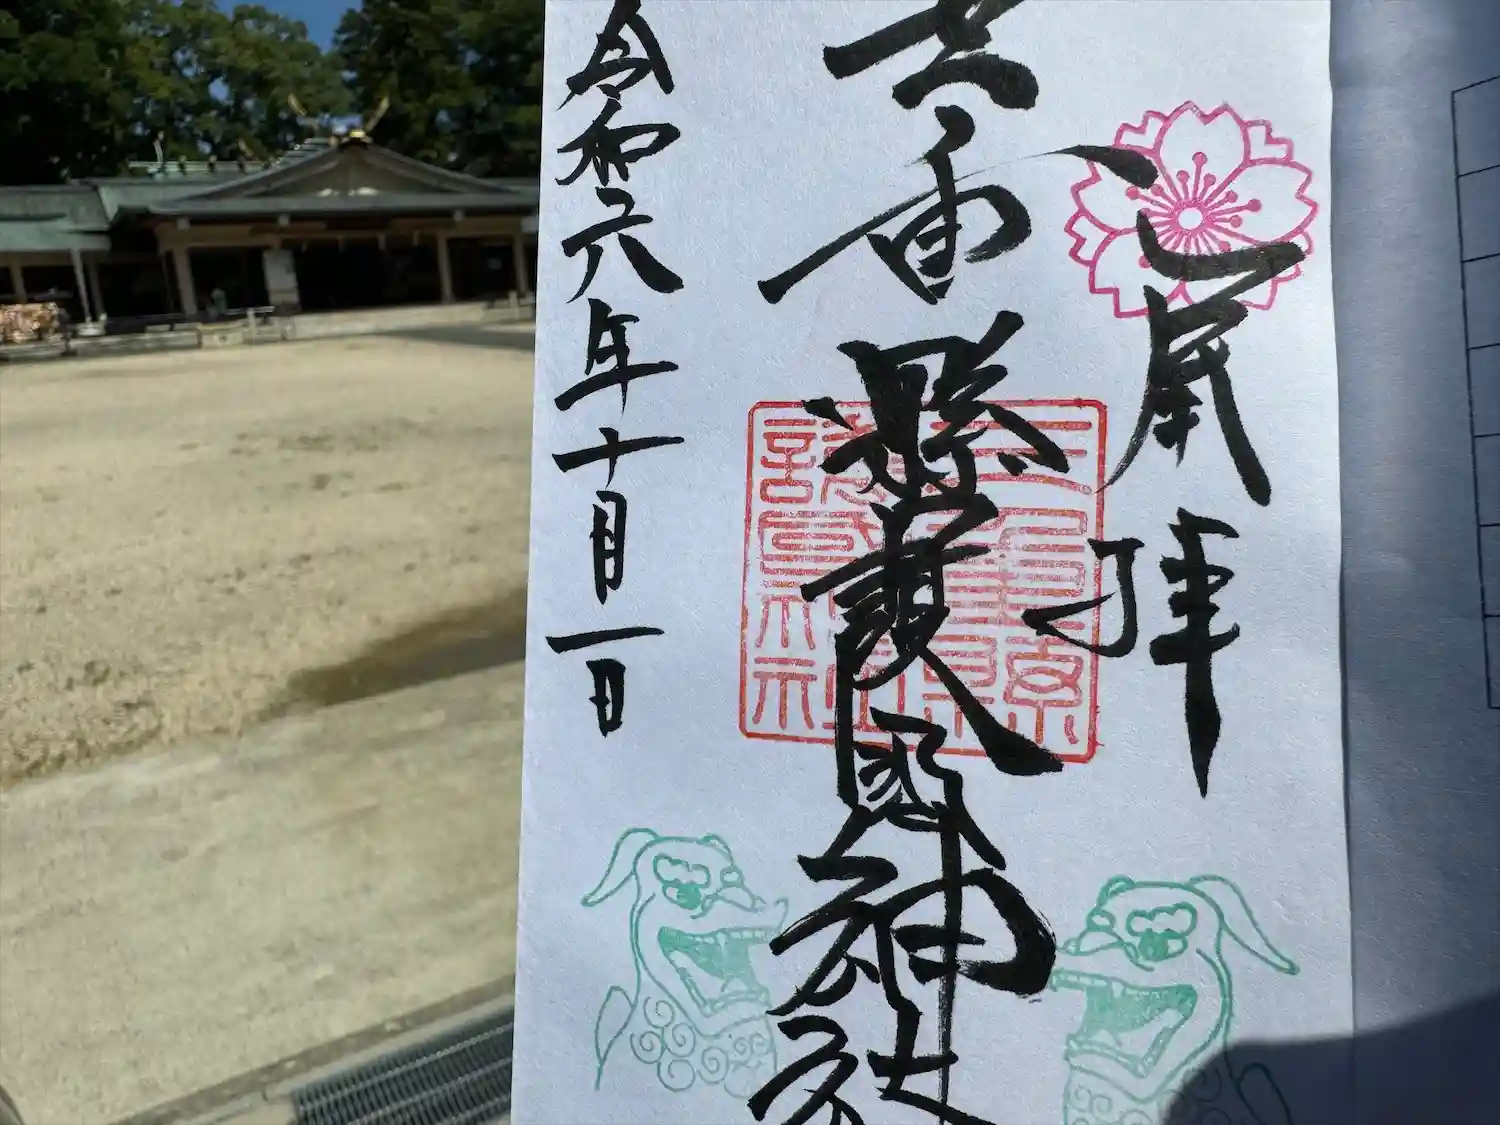 奉拝
三重縣護國神社
令和六年十月一日